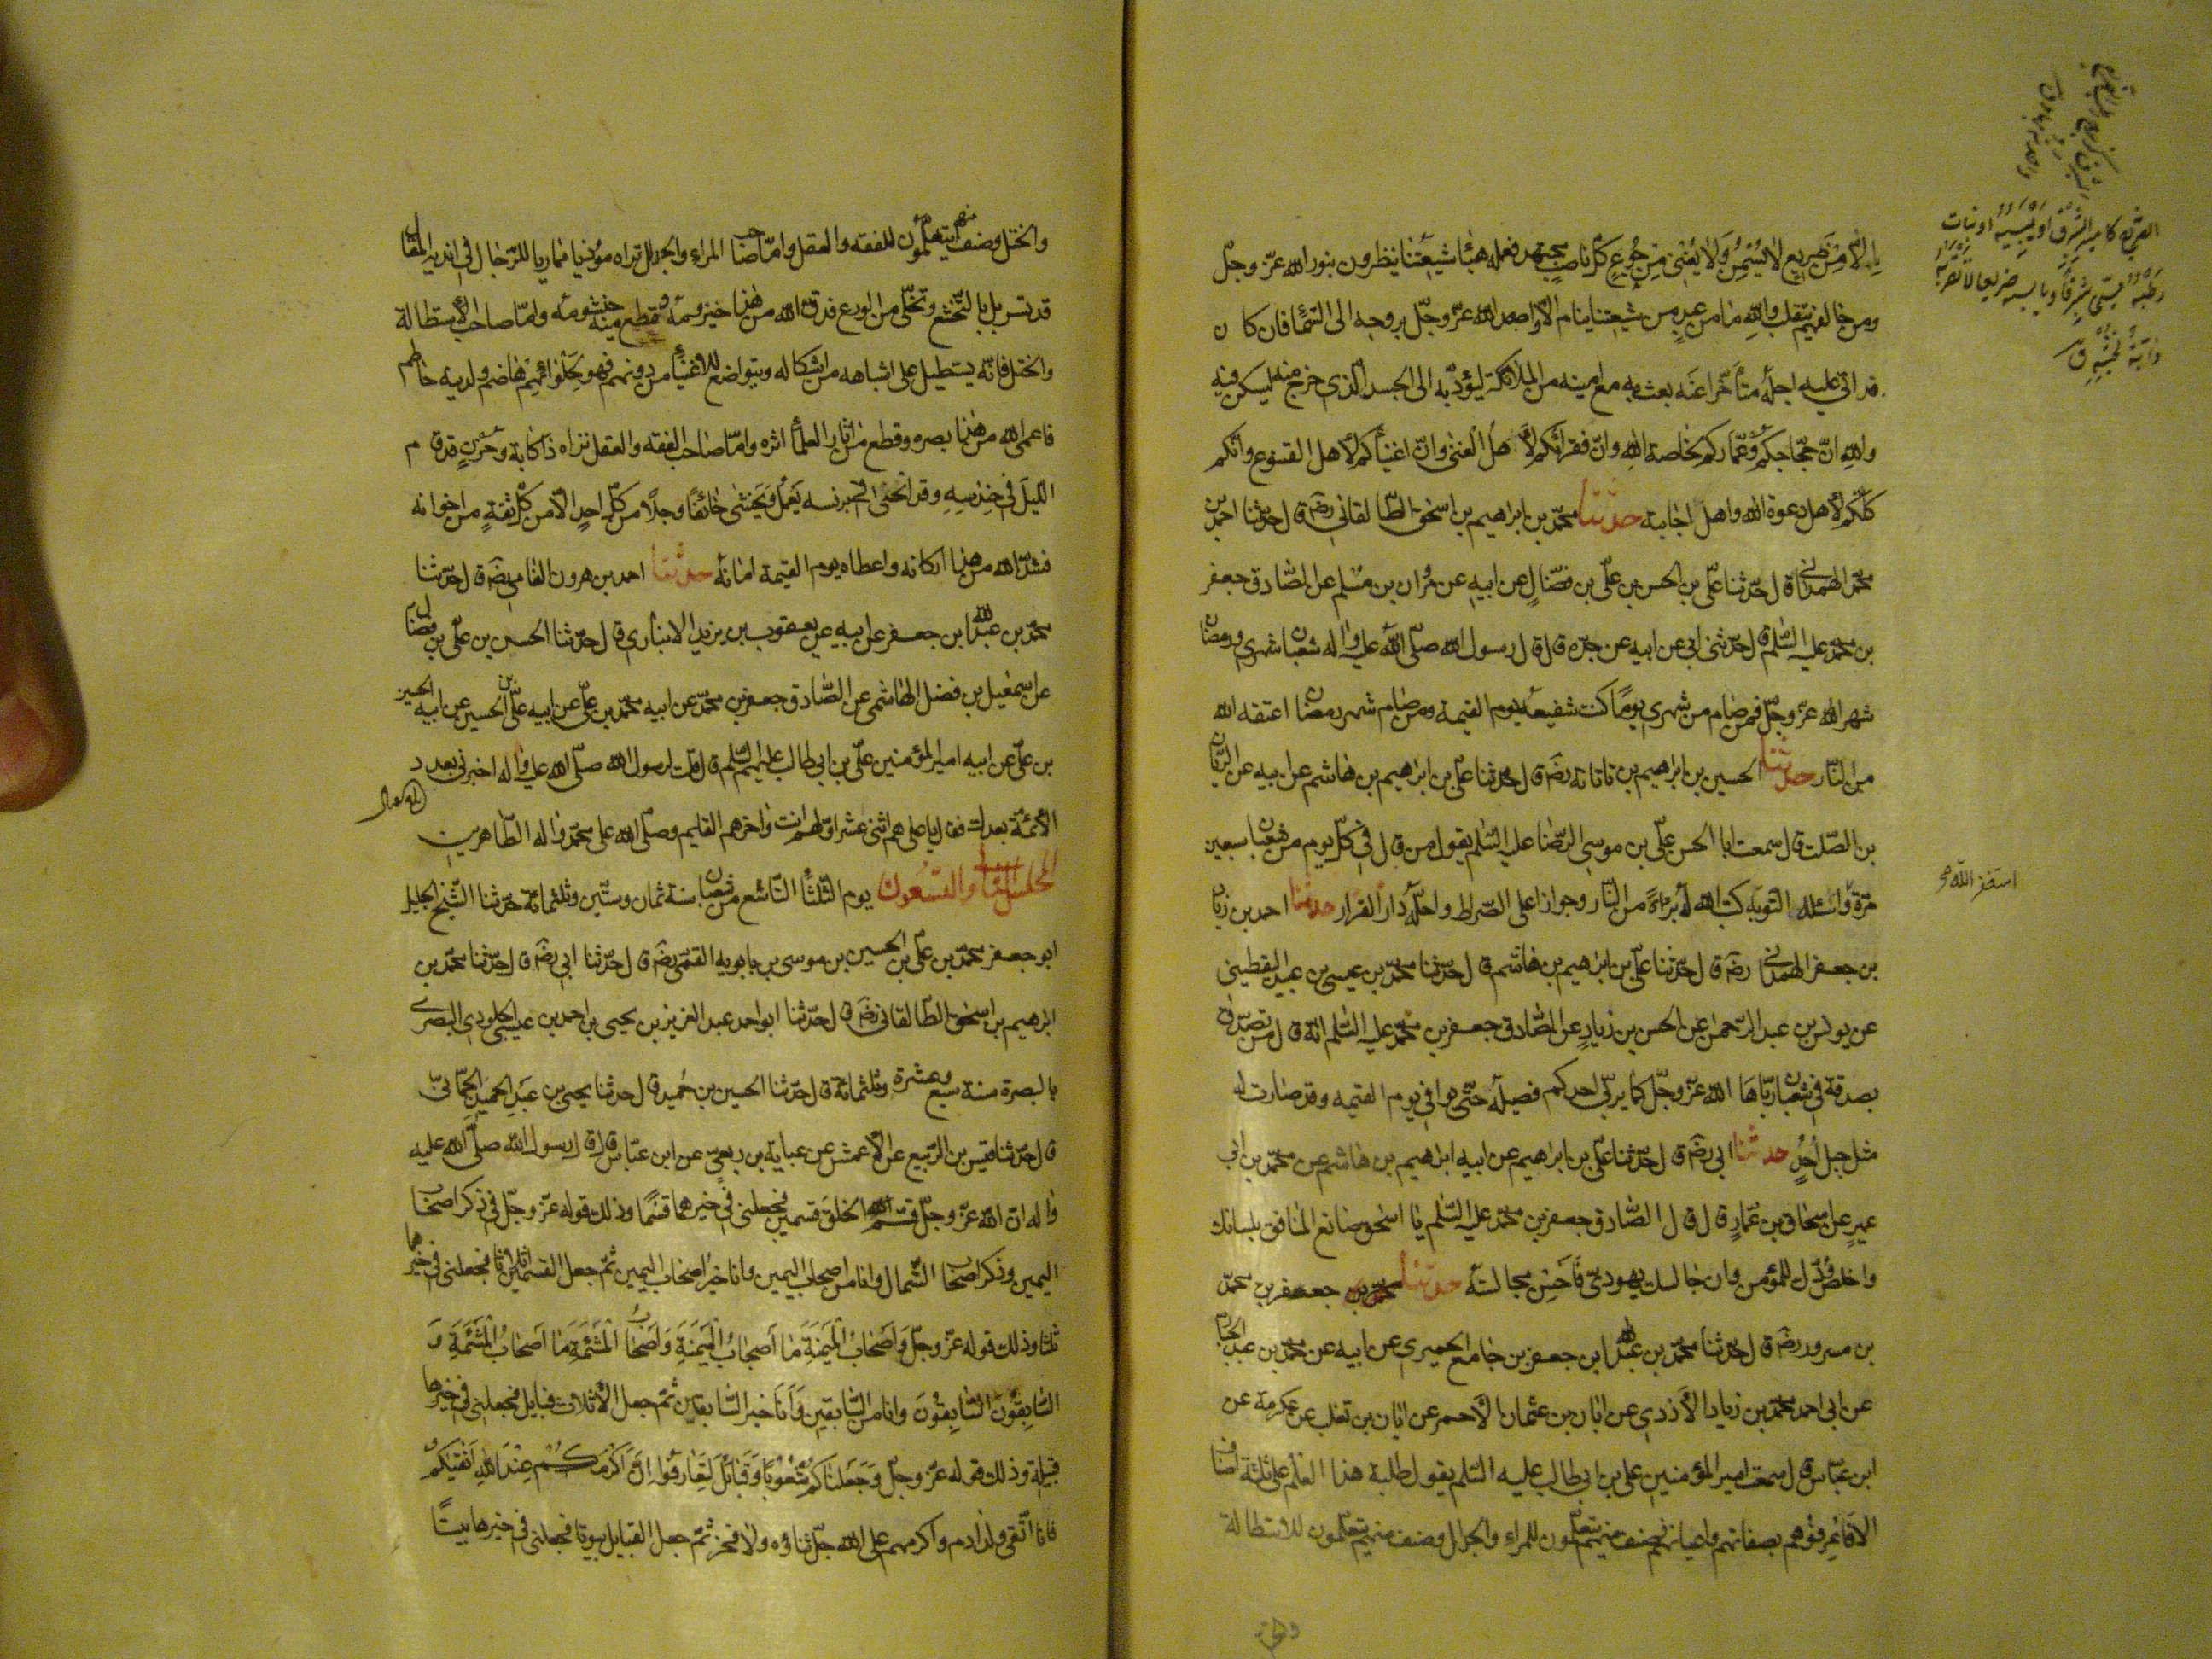 إلّا من ضريع لا يسمن ولا يغني من جوع كلّ ناصب مجتهد فعمله هباء شيعتنا ينظرون بنور الله عزّ وجلّ
ومن خالفهم يتقلب والله ما من عبد من شيعتنا ينام الّا واصعد الله عزّ وجلّ بروحه الى السّماء فان كان
قد اتى عليه اجله متأخّرا عنه بعث به مع امينه من الملائكة ليؤدّيه الى الجسد الّذي خرج منه ليسكن فيه
والله انّ حجّاجكم وعمّاركم لخاصة الله وانّ فقرائكم لأهل الغنى وانّ اغنيائكم لأهل القنوع وانّكم
كلّكم لأهل دعوة الله واهل اجابته حدّثنا محمّد بن ابراهيم بن اسحق الطّالقاني رضه ق ل حدّثنا احمد بن
محمّد الهمداني ق ل حدّثنا عليّ بن الحسن بن عليّ بن فضّال عن ابيه عن مروان بن مسلم عن الصّادق جعفر
بن محمّد عليه السّلم ق ل حدّثني ابي عن ابيه عن جدّه قال ق ل رسول الله صلّى الله عليه واله شعبان شهري ورمضان
شهر الله عزّ وجلّ فمن صام من شهري يومًا كنت شفيعه يوم القيمة ومن صام شهر رمضان اعتقه الله
من النّار حدّثنا الحسين بن ابراهيم بن ناتانه رضه ق ل حدّثنا عليّ بن ابراهيم بن هاشم عن ابيه عن الرّيّان
بن الصّلت قال سمعت ابا الحسن عليّ بن موسى الرّضا عليه السّلم يقول من قال في كلّ يوم من شعبان سبعين
مرّة واسئله التّوبة كتب الله له براءة من النّار وجوازا على الصّراط واحلّه دار القرار حدّثنا احمد بن زياد
استغفر الله
بن جعفر الهمداني رضه ق ل حدّثنا عليّ بن ابراهيم بن هاشم ق ل حدّثنا محمّد بن عيسى بن عبيد اليقطيني
عن يونس بن عبد الرّحمن عن الحسن بن زياد عن الصّادق جعفر بن محمّد عليه السّلم انّه ق ل من تصدّق
بصدقة في شعبان ربّاها الله عزّ وجلّ كما يربّي احدكم فصيله حتّى يوافي يوم القيمة وقد صارت له
مثل جبل أُحُدٍ حدّثنا ابي رضه ق ل حدّثنا عليّ بن ابراهيم عن ابيه ابراهيم بن هاشم عن محمّد بن ابي
عمير عن اسحاق بن عمّار ق ل ق ل الصّادق جعفر بن محمّد عليه السّلم يا اسحق صانع المنافق بلسانك
واخلص ودّك للمؤمن وان جالسك يهوديّ فأحسن مجالسته حدّثنا جعفر بن محمّد
بن مسرور رضه ق ل حدّثنا محمّد بن عبد الله بن جعفر بن جامع الحميري عن ابيه عن محمّد بن عبد الجبّار
عن ابي احمد محمّد بن زياد الأزدي عن ابان بن عثمان الأحمر عن ابان بن تغلب عن عكرمة عن
ابن عبّاس ق ل سمعت امير المؤمنين علي بن ابي طالب عليه السّلم يقول طلبة هذا العلم على ثلثة اصناف
الا فاعرفوهم بصفاتهم واعيانهم صنف منهم يتعلّمون للمراء والجدال وصنف منهم يتعلّمون للاستطالة
والختل وصنف منهم يتعلّمون للفقه والعقل وامّا صاحب المراء والجدال تراه مؤذيا مماريا للرّجال في اندية المقال
قد تسربل بالتّخشّع وتخلّى من الورع فدقّ الله من هذا خيزومه وقطع منه خيشومه وامّا صاحب الأستطالة
والختل فانّه يستطيل على اشباهه من اشكاله ويتواضع للاغنياء من دونهم فهو لحلوائهم هاضم ولدينه حاطم
فاعمى الله من هذا بصره وقطع من اثار العلماء اثره وامّا صاحب الفقه والعقل تراه ذا كابة وحزن قد قام
اللّيل في حندسه وقد انحنى في برنسه يعمل ويخشى خائفًا وجلًا من كلّ احدٍ الّا من كلّ ثقةٍ من اخوانه
فشدّ الله من هذا اركانه واعطاه يوم القيمة امانه حدّثنا احمد بن هرون الفامي رضه ق ل حدّثنا
محمّد بن عبد الله ابن جعفر عن ابيه عن يعقوب بن يزيد الانباري ق ل حدّثنا الحسن بن عليّ بن فضّال
عن اسمعيل بن فضل الهاشمي عن الصّادق جعفر بن محمّد عن ابيه محمّد بن عليّ عن ابيه عليّ بن الحسين عن ابيه الحسين
بن عليّ عن ابيه امير المؤمنين عليّ بن ابي طالب عليهم السّلم ق ل قلت لرسول الله صلّى الله عليه واله اخبرني بعدد
الأئمّة بعدك فقال يا علي هم اثنى عشر اوّلهم انت واخرهم القايم وصلّى الله على محمّد واله الطّاهرين
المجلس الثّاني والتّسعون يوم الثّلثا التّاسع من شعبان سنة ثمان وستّين وثلثمائة حدّثنا الشّيخ الجليل
ابو جعفر محمّد بن عليّ بن الحسين بن موسى بن بابويه القمّي رضه ق ل حدّثنا ابي رضه ق ل حدّثنا محمّد بن
ابرهيم بن اسحق الطّالقاني رضه ق ل حدّثنا ابو احمد عبد العزيز بن يحيى بن احمد بن عيسى الجلودي البصري
بالبصرة سنة سبع وعشرة وثلثمائة ق ل حدّثنا الحسين بن حُميد ق ل حدثنا يحيى بن عبد الحميد الحمّانيّ
ق ل حدّثنا قيس بن الرّبيع عن الأعمش عن عباية بن ربعيّ عن ابن عبّاس ق ل ق ل رسول الله صلّى الله عليه
واله انّ الله عزّ وجلّ قسم الخلق قسمين فجعلني في خيرهما قسمًا وذلك قوله عزّ وجلّ في ذكر اصحاب
اليمين وذكر اصحاب الشّمال وانا من اصحاب اليمين وانا خير اصحاب اليمين ثمّ جعل القسمين اثلاثا فجعلني في خيرها
ثلثا وذلك قوله عزّ وجلّ وَاَصْحَابُ الْمَيْمَنَةِ مَا اَصْحَابُ الْمَيْمَنَةِ وَاَصْحَابُ الْمَشْئَمَةِ مَا اَصْحَابُ الْمَشْئَمَةِ وَ
السَّابِقُونَ السَّابِقُونَ وانا من السّابقين وَاَنَا خير السّابقين ثمّ جعل الأثلاث قبايل فجعلني في خيرها
قبيلة وذلك قوله عزّ وجلّ وَجَعَلْنَاكُمْ شُعُوبًا وَقَبَائِلَ لِتَعَارَفُوا اِنَّ اَكْرَمَكُمْ عِنْدَ اللهِ اَتْقَيٰكُمْ
فانا اتقى ولد ادم واكرمهم على الله جلّ ثناؤه ولا فخر ثمّ جعل القبايل بيوتا فجعلني في خيرها بيتًا